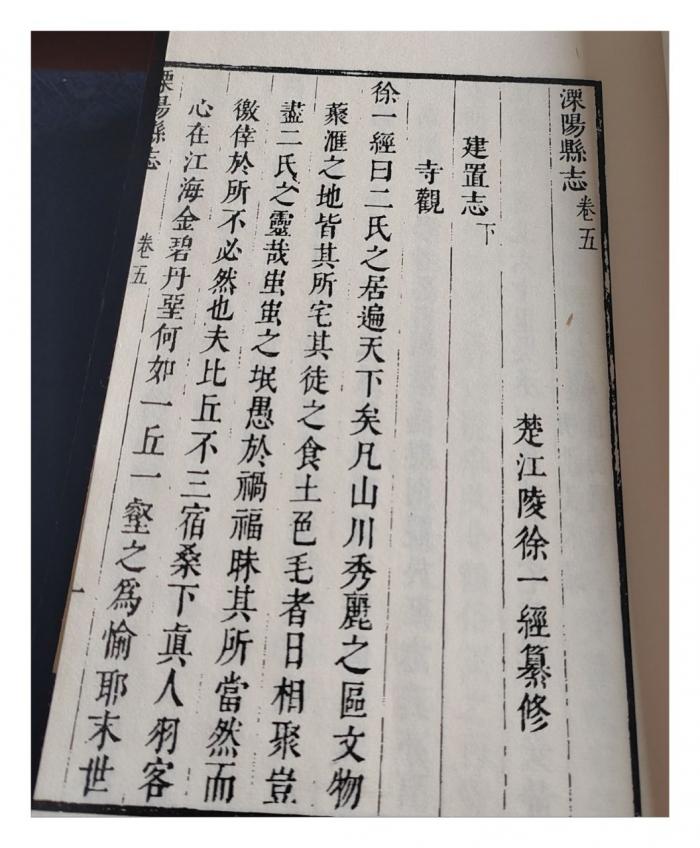 溧陽縣志 卷五
楚江陵徐一經纂修
建置志 下
寺觀
徐一經曰二氏之居遍天下矣凡山川秀麗之區文物
聚滙之地皆其所宅其徒之食土邑毛者日相聚豈
盡二氏之靈哉蚩蚩之氓愚於禍福昧其所當然而
徼倖於所不必然也夫比丘不三宿桑下眞人羽客
心在江海金碧丹堊何如一丘一壑之爲愉耶末世
溧陽縣志 卷五 一